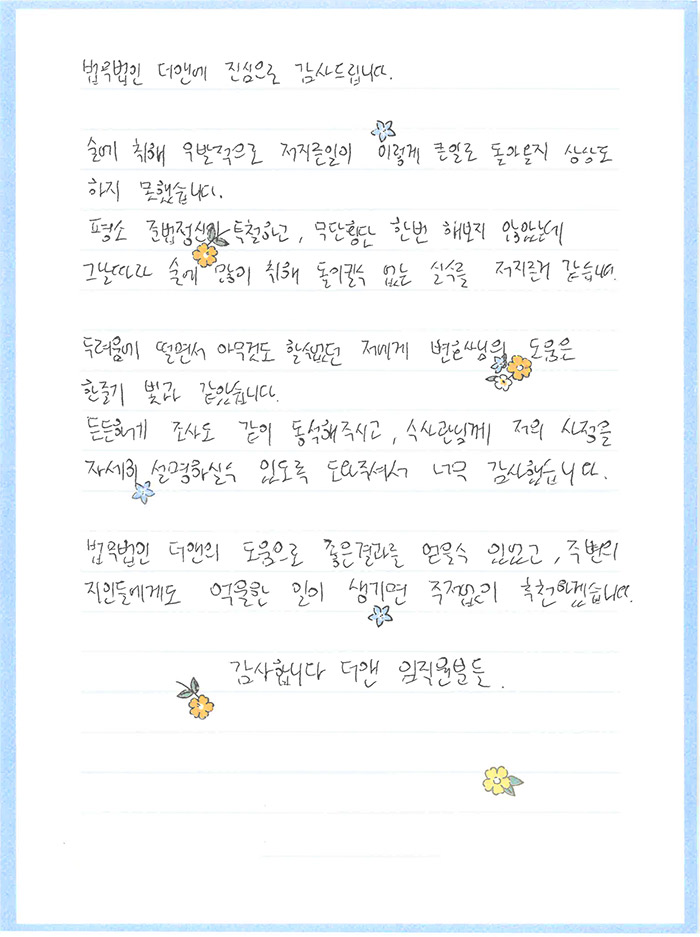 법무법인 더앤에 진심으로 감사드립니다.
술에 취해 우발적으로 저지른일이 이렇게 큰일로 돌아올지 상상도
하지 못했습니다.
평소 준법정신이 투철하고, 무단횡단 한번 해보지 않았는데
그날따라 술에 많이 취해 돌이킬수 없는 실수를 저지른거 같습니다.
두려움에 떨면서 아무것도 할수없던 저에게 변호사님의 도움은
한줄기 빛과 같았습니다.
든든하게 조사도 같이 동석해주시고, 수사관님께 저의 사정을
자세히 설명하실수 있도록 도와주셔서 너무 감사했습니다.
법무법인 더앤의 도움으로 좋은결과를 얻을수 있었고, 주변의
지인들에게도 억울한 일이 생기면 주저없이 추천하겠습니다.
감사합니다 더앤 임직원분들.